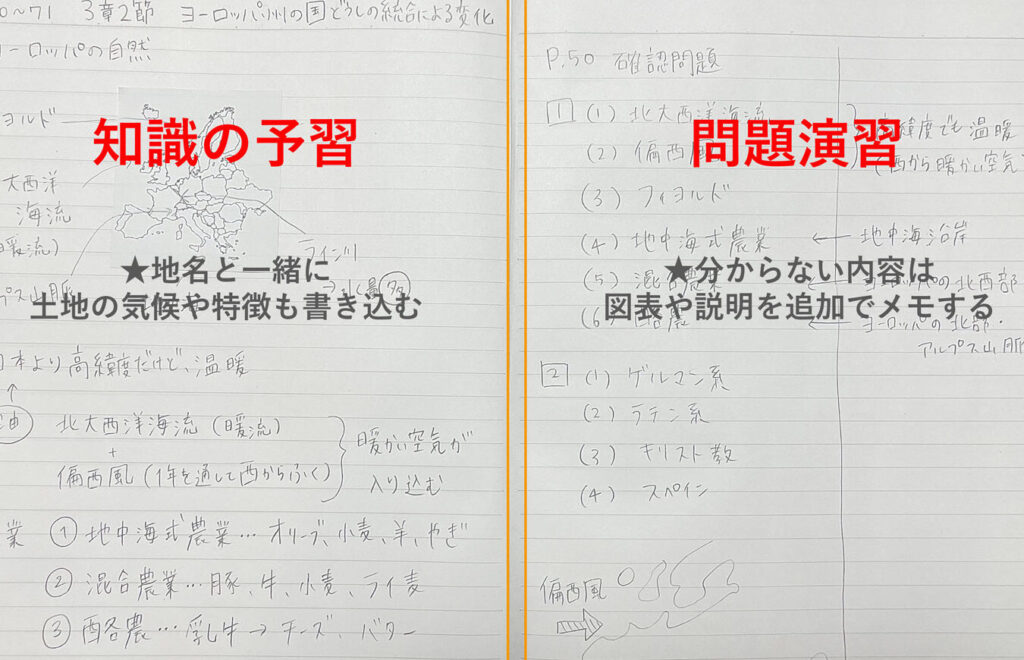 0~71 3章2節 ヨーロッパ州の国どうしの統合による変化
ーロッパの自然
知識の予習
ヨルド
大西洋
海流
暖流)
ライン川
プス山脈
★地名と一緒に
土地の気候や特徴も書き込む
本より高緯度だけど、温暖
↑
由
北大西洋海流(暖流)
+
偏西風(1年を通して西からふく)
暖かい空気が
入り込む
業 ① 地中海式農業… オリーブ、小麦、羊、やぎ
② 混合農業… 豚、牛、小麦、ライ麦
③ 酪農… 乳牛→チーズ、バター
P.50 確認問題
問題演習
1 (1) 北大西洋海流
緯度でも温暖
(2) 偏西風
西から暖かい空気
(3) フィヨルド
(4) 地中海式農業 ← 地中海沿岸
(5) 混合農業 ← ヨーロッパの北西部
★分からない内容は
図表や説明を追加でメモする
(6) 酪農 ← ヨーロッパの北部・
アルプス山脈
2 (1) ゲルマン系
(2) ラテン系
(3) キリスト教
(4) スペイン
偏西風